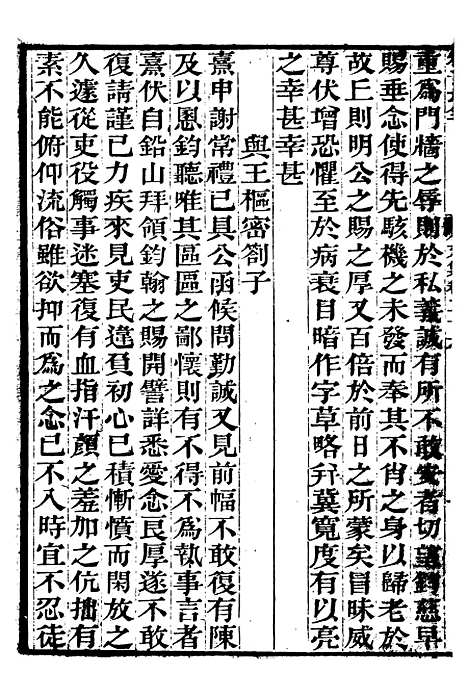 重為門牆之辱則於私義誠有所不敢安者切望鈞慈早
賜垂念使得先駭機之未發而奉其不肖之身以歸老於
故丘則明公之賜之厚又百倍於前日之所蒙矣冒昧威
尊伏增恐懼至於病衰目暗作字草略幷冀寬度有以亮
之幸甚幸甚
與王樞密劄子
熹申謝常禮已具公函候問勤誠又見前幅不敢復有陳
及以慁鈞聽唯其區區之鄙懷則有不得不為執事言者
熹伏自鉛山拜領鈞翰之賜開譬詳悉愛念良厚遂不敢
復請謹已力疾來見吏民違負初心已積慚憤而閑放之
久遽從吏役觸事迷塞復有血指汗顏之羞加之伉拙有
素不能俯仰流俗雖欲抑而為之念已不入時宜不忍徒